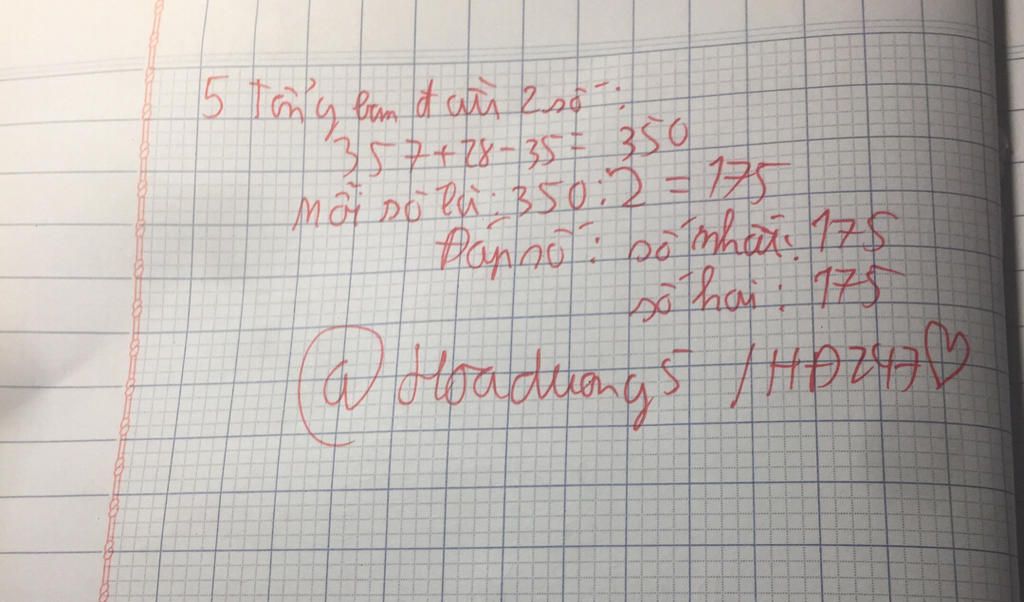 5 Tổng ban đầu 2 số:
357+28-35= 350
Mỗi số là: 350:2 = 175
Đáp số: số nhất: 175
số hai: 175
@ Hoaduong5 / HD247♡